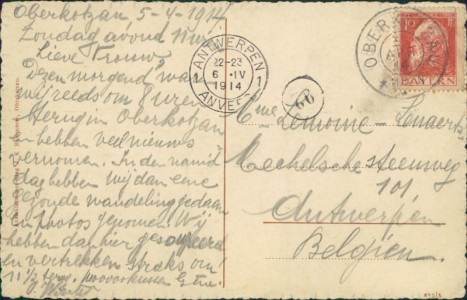 Oberkotzau, 5-4-1914
Zondag avond
Lieve Vrouw,
Dezen morgend wa
wij reeds om 8 uren
terug in Oberkotzau
en hebben veel nieuws
vernomen. In den namid
dag hebben wij dan eene
goude wandeling gedaan
en photos genomen. Wij
hebben dan hier gesoupeerd
en vertrekken straks om
11 1/2
ANTWERPEN
22-23
1 6 · IV 1
1914
ANVERS
99
OBER
10
BAYERN
Mme Lemoine-Lenaerts
Mechelsche steenweg
101
Antwerpen
Belgien.